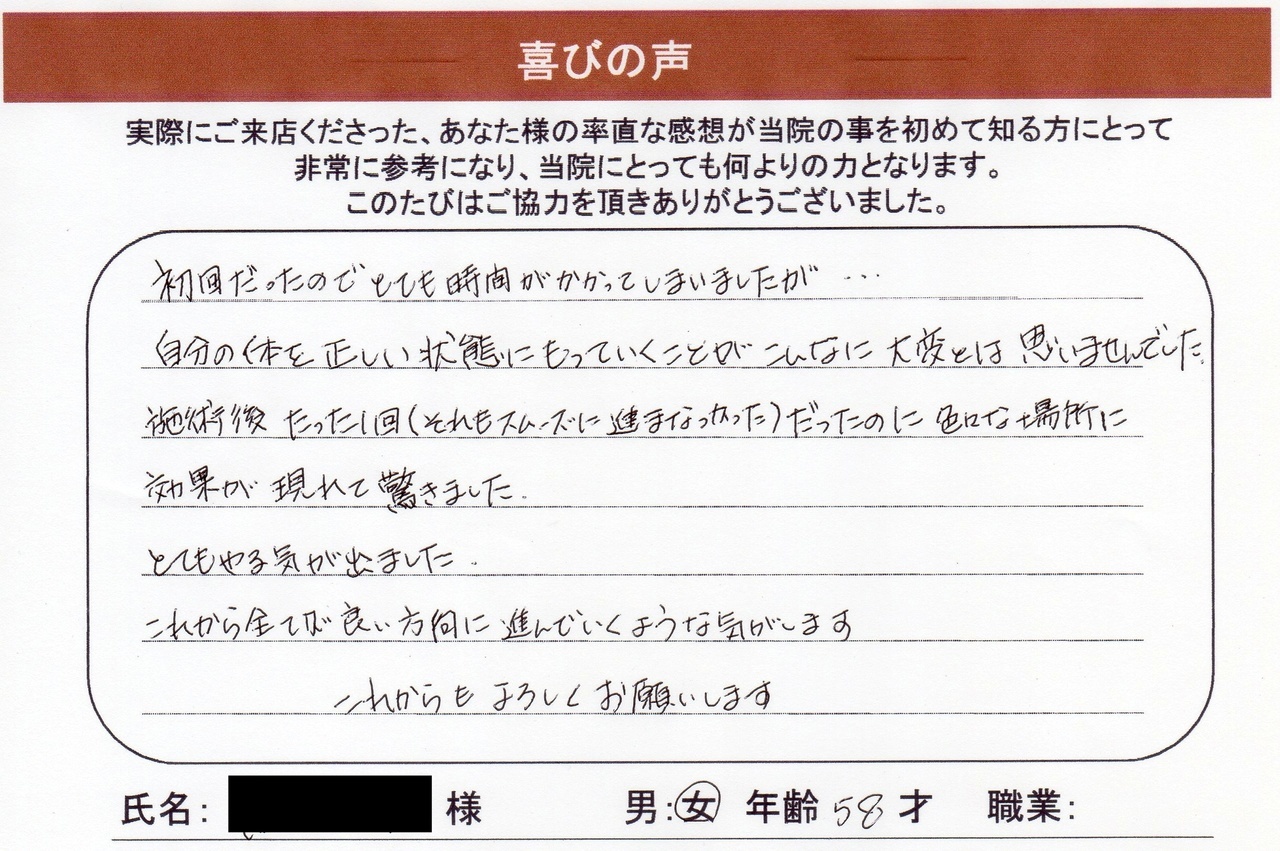 喜びの声
実際にご来店くださった、あなた様の率直な感想が当院の事を初めて知る方にとって
非常に参考になり、当院にとっても何よりの力となります。
このたびはご協力を頂きありがとうございました。
初回だったのでとても時間がかかってしまいましたが ...
自分の体を正しい状態にもっていくことがこんなに大変とは思いませんでした.
施術後 たった1回(それもスムーズに進まなかった)だったのに色々な場所に
効果が現れて驚きました.
とてもやる気が出ました.
これから全てが良い方向に進んでいくような気がします
これからもよろしくお願いします
氏名: 様 男:女 年齢 58 才 職業: